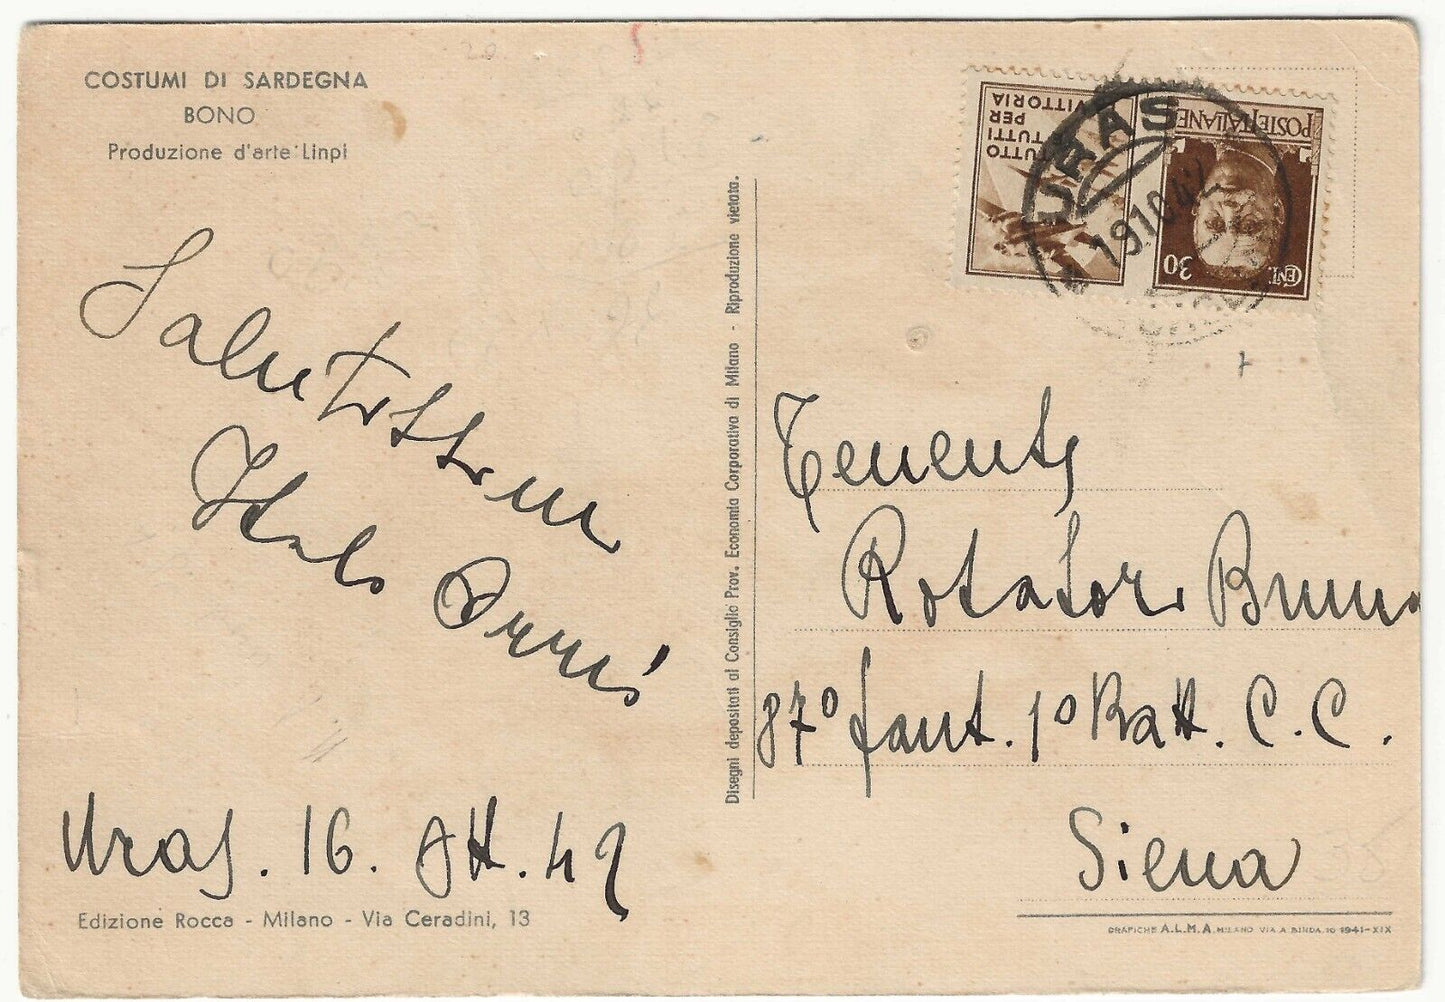 COSTUMI DI SARDEGNA
BONO
Produzione d'arte Linpi
Salutissimi
Italo
Uras. 16. Ott. 42
Edizione Rocca - Milano - Via Ceradini, 13
Disegni depositati al Consiglio Prov. Economia Corporativa di Milano - Riproduzione vietata.
TUTTO
TUTTI
PER
VITTORIA
POSTE ITALIANE
CENT. 30
URAS
19.10.42
Tenente
Rotatori Bruno
87° fant. 1° Batt. C. C.
Siena
GRAFICHE A.L.M.A. MILANO VIA A. BINDA, 10 1941-XIX